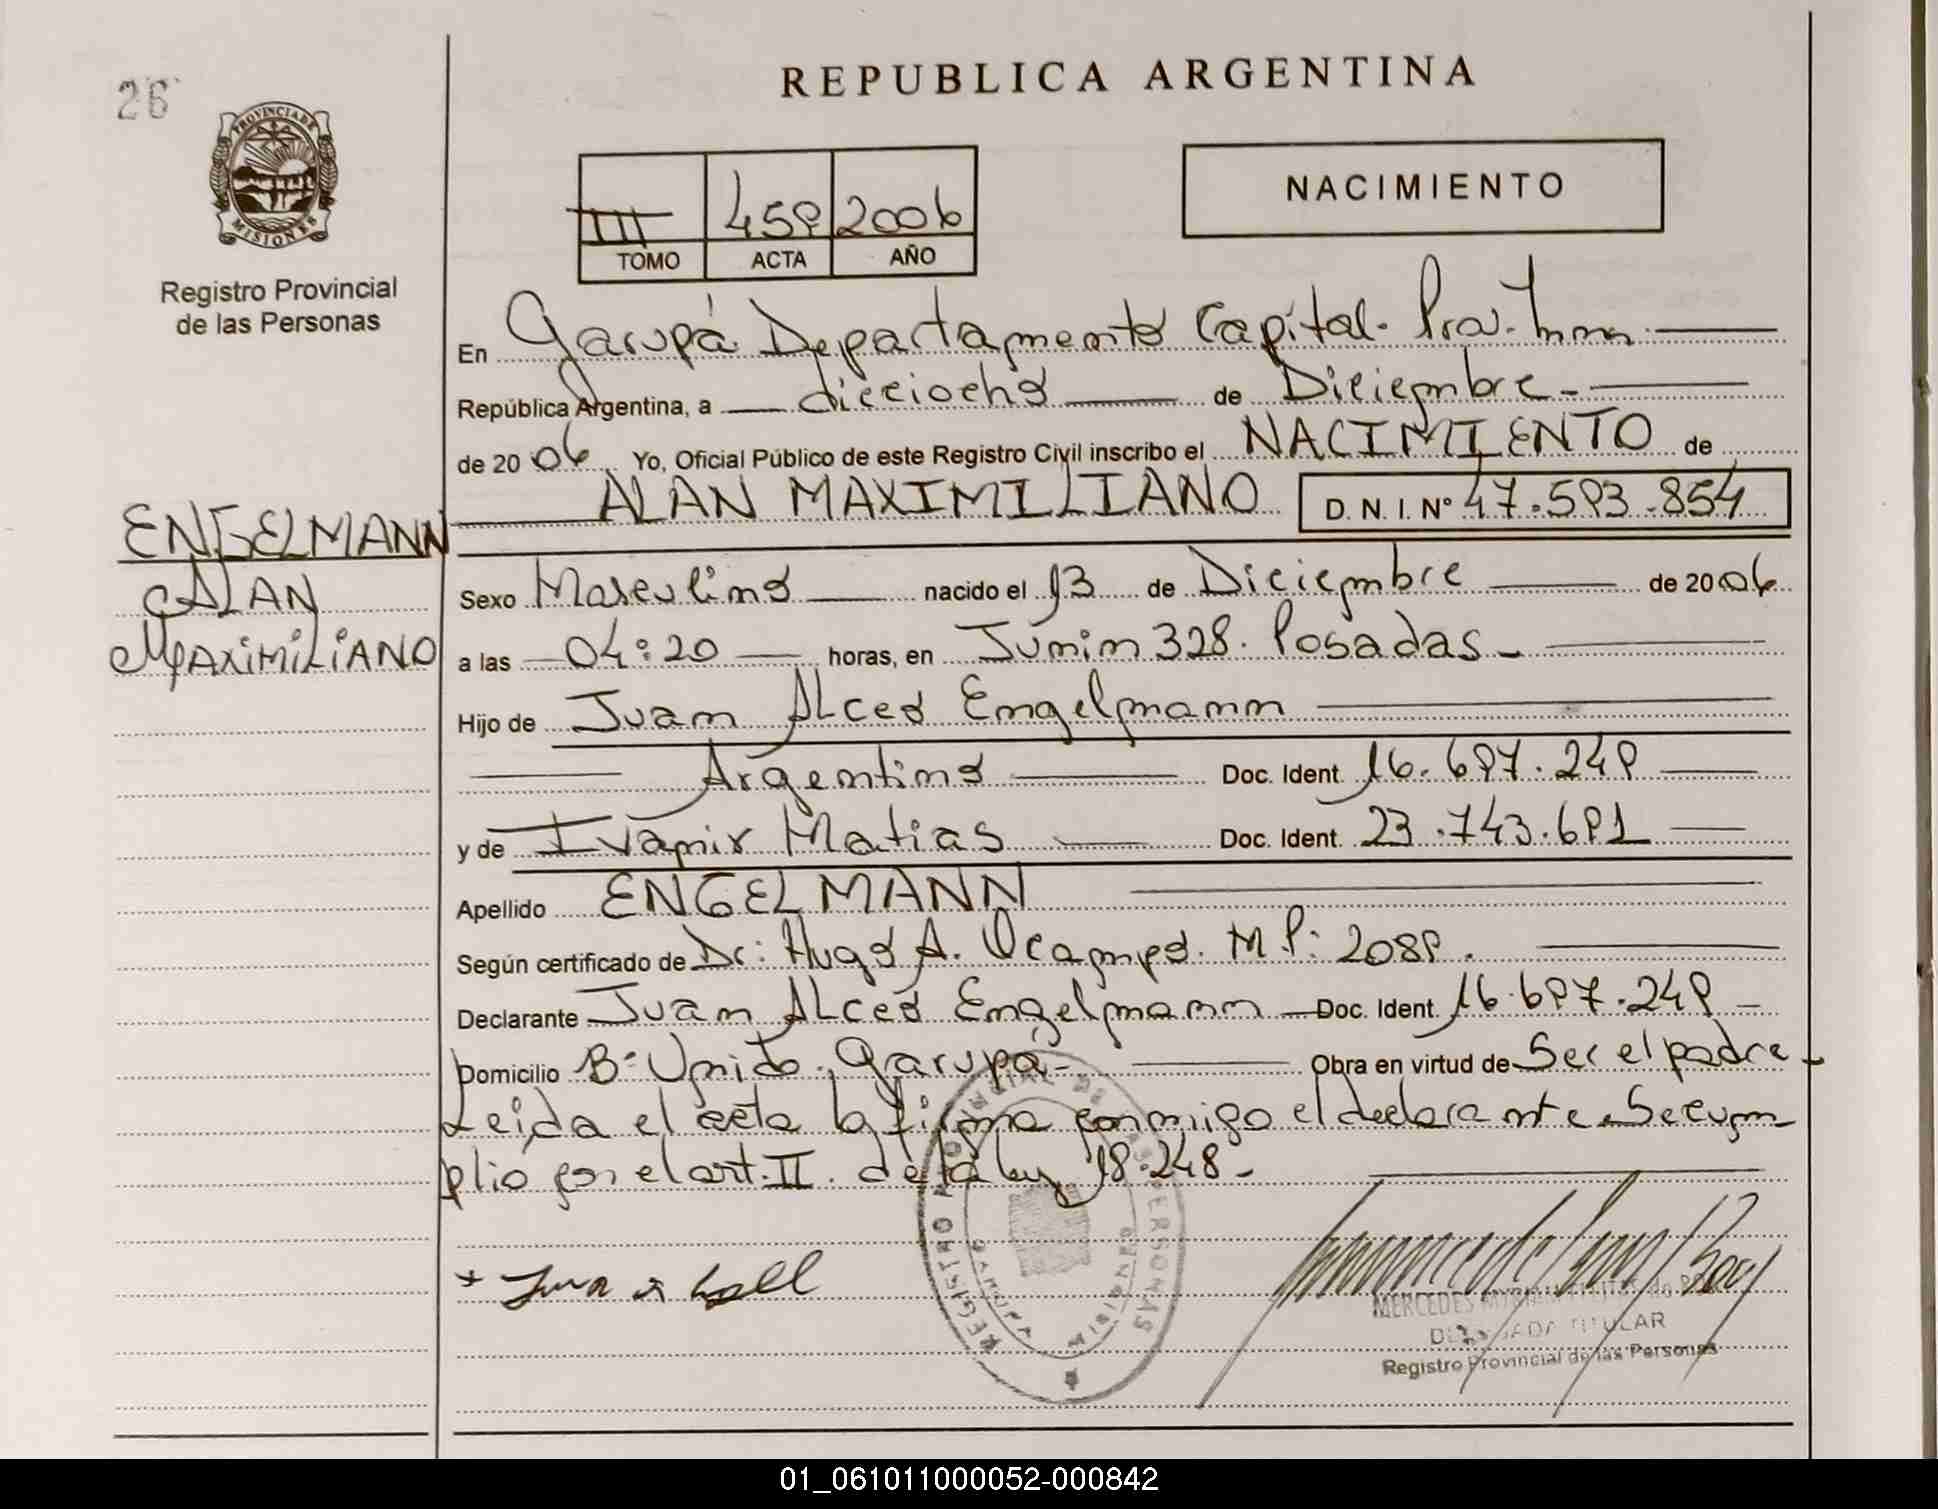 26
REPUBLICA ARGENTINA
PROVINCIA DE
MISIONES
Registro Provincial
de las Personas
III 459 2006
TOMO ACTA AÑO
NACIMIENTO
En Garupá Departamento Capital. Prov. Mnes.
República Argentina, a dieciocho de Diciembre
de 2006 Yo, Oficial Público de este Registro Civil inscribo el NACIMIENTO de
ALAN MAXIMILIANO D. N. I. Nº 47.593.854
ENGELMANN
ALAN
MAXIMILIANO
Sexo Masculino nacido el 13 de Diciembre de 2006
a las 04:20 horas, en Junin 328. Posadas
Hijo de Juan Alceo Engelmann
Argentino Doc. Ident. 16.697.249
y de Ivanir Matias Doc. Ident. 23.743.691
Apellido ENGELMANN
Según certificado de Dr: Hugo A. Ocampo. M P: 2089.
Declarante Juan Alceo Engelmann Doc. Ident. 16.697.249
Domicilio Bº Unido. Garupá Obra en virtud de Ser el padre
Leida el acta la firma conmigo el declarante. Se cum
plio con el art. II. de la ley 18.248
REGISTRO PROVINCIAL DE LAS PERSONAS
MISIONES
MERCEDES
DELEGADA TITULAR
Registro Provincial de las Personas
01_061011000052-000842